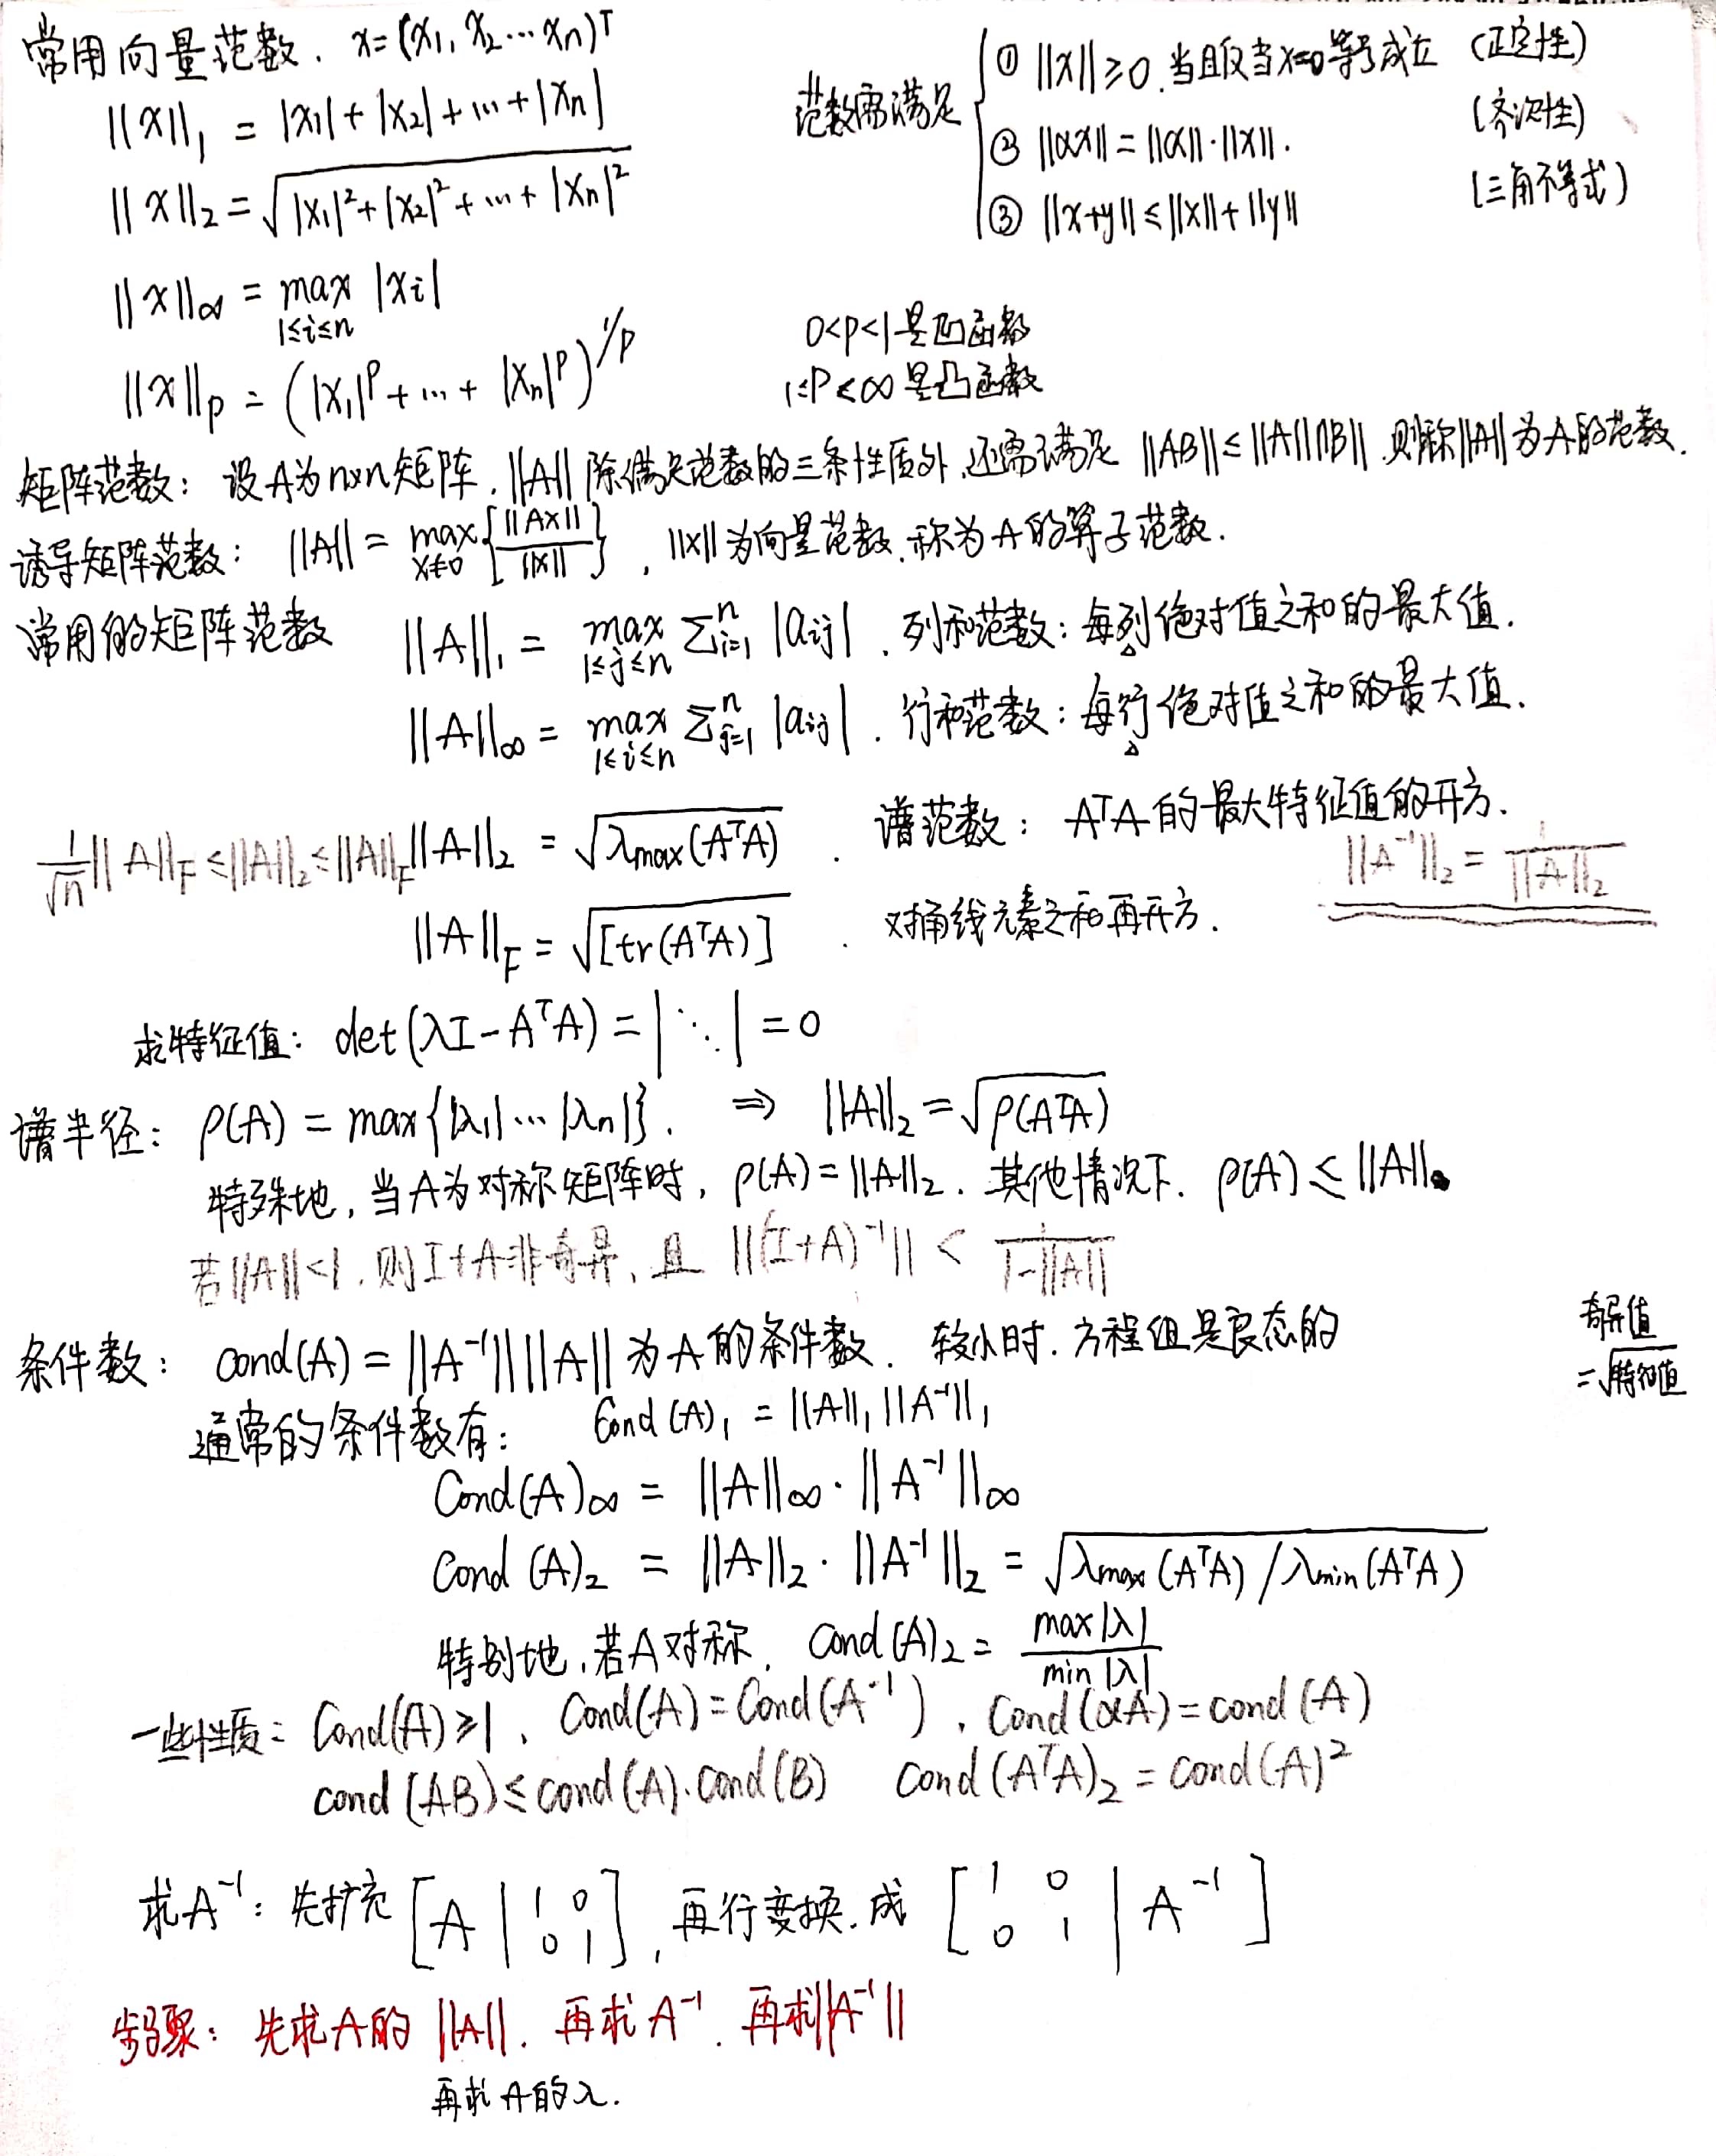 常用向量范数. x=(x₁, x₂…xₙ)ᵀ
||x||₁ = |x₁|+|x₂|+…+|xₙ|
||x||₂=√(|x₁|²+|x₂|²+…+|xₙ|²)
||x||∞ = max |xi|
1≤i≤n
||x||p = (|x₁|ᵖ+…+|xₙ|ᵖ)^1/p
范数需满足
① ||x||≥0. 当且仅当x=0等号成立 (正定性)
② ||αx||=||α||·||x||. (齐次性)
③ ||x+y||≤||x||+||y|| (三角不等式)
0<p<1是凹函数
1≤p<∞是凸函数
矩阵范数: 设A为n×n矩阵, ||A||除满足范数的三条性质外,还需满足 ||AB||≤||A||||B||,则称||A||为A的范数.
诱导矩阵范数: ||A|| = max{||Ax||/||x||}, ||x||为向量范数,称为A的算子范数.
x≠0
常用的矩阵范数 ||A||₁ = max Σⁿᵢ₌₁ |aij|. 列和范数: 每列绝对值之和的最大值.
1≤j≤n
||A||∞ = max Σⁿⱼ₌₁ |aij|. 行和范数: 每行绝对值之和的最大值.
1≤i≤n
1/√n ||A||F ≤||A||₂≤||A||F
||A||₂ = √λmax(AᵀA). 谱范数: AᵀA的最大特征值的开方.
||A⁻¹||₂ = 1/||A||₂
||A||F = √[tr(AᵀA)]. 对角线元素之和再开方.
求特征值: det(λI-AᵀA)=|⋱|=0
谱半径: ρ(A) = max{|λ₁|…|λₙ|}. ⇒ ||A||₂=√ρ(AᵀA)
特殊地, 当A为对称矩阵时, ρ(A)=||A||₂. 其他情况下. ρ(A)≤||A||
若||A||<1, 则I+A非奇异, 且 ||(I+A)⁻¹|| < 1/(1-||A||)
条件数: cond(A) = ||A⁻¹||||A||为A的条件数. 较小时. 方程组是良态的
奇异值
=√特征值
通常的条件数有: Cond(A)₁ = ||A||₁||A⁻¹||₁
Cond(A)∞ = ||A||∞·||A⁻¹||∞
Cond(A)₂ = ||A||₂·||A⁻¹||₂ = √(λmax(AᵀA)/λmin(AᵀA))
特别地,若A对称, Cond(A)₂= max|λ|/min|λ|
一些性质: Cond(A)≥1, Cond(A)=Cond(A⁻¹), Cond(αA)=cond(A)
cond(AB)≤cond(A)·cond(B) Cond(AᵀA)₂=cond(A)²
求A⁻¹: 先扩充 [A | 1 0
0 1], 再行变换.成 [1 0
0 1 | A⁻¹]
步骤: 先求A的||A||. 再求A⁻¹. 再求||A⁻¹||
再求A的λ.